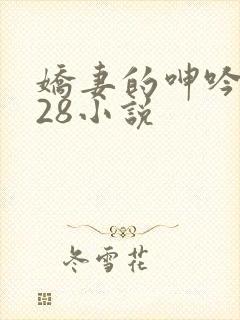 嬌妻的呻吟
28小說
冬雪花